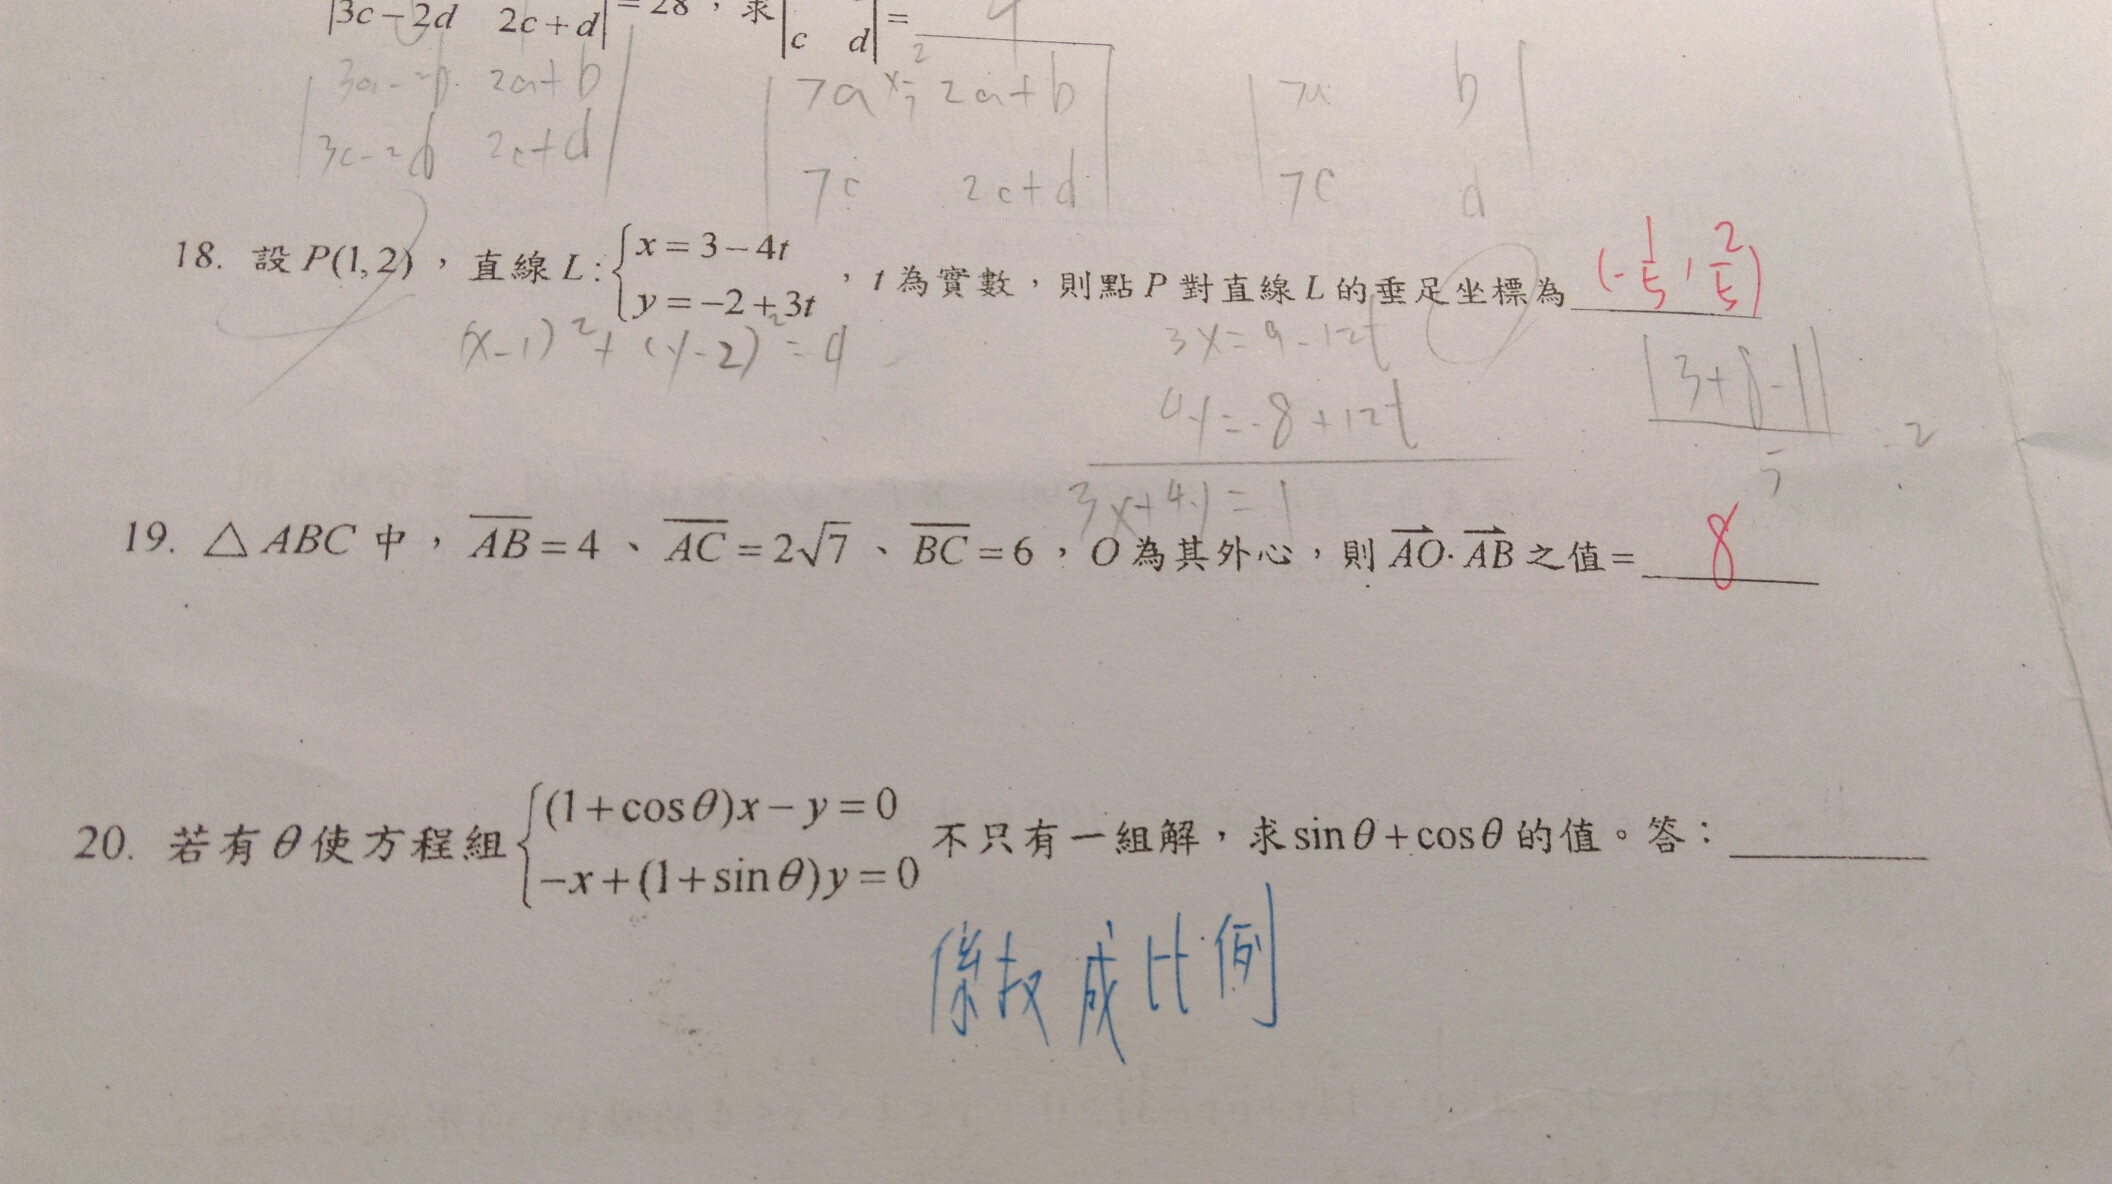 |3c-2d 2c+d| = 28，求|c d| =
3a-2b 2a+b
3c-2d 2c+d
7a 2a+b
7c 2c+d
7a b
7c d
18. 設 P(1,2)，直線 L:{x=3-4t
y=-2+3t，t 為實數，則點 P 對直線 L 的垂足坐標為 (-1/5, 2/5)
(x-1)²+(y-2)²=4
3x=9-12t
4y=-8+12t
3x+4y=1
|3+8-1|
5
=2
19. △ABC 中，AB=4、AC=2√7、BC=6，O 為其外心，則 AO·AB 之值= 8
20. 若有 θ 使方程組{(1+cosθ)x-y=0
-x+(1+sinθ)y=0 不只有一組解，求 sinθ+cosθ 的值。答：
係数成比例